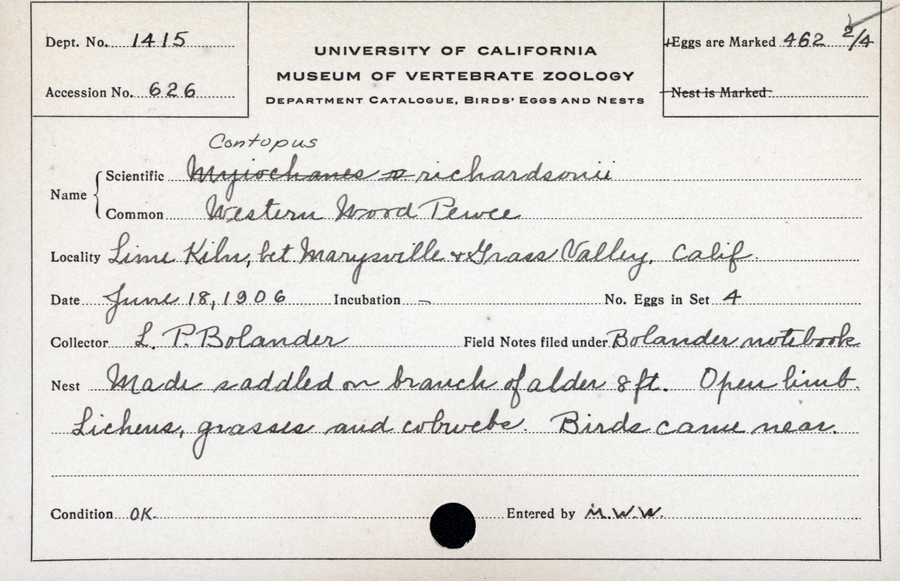 Dept. No. 1415
UNIVERSITY OF CALIFORNIA
MUSEUM OF VERTEBRATE ZOOLOGY
DEPARTMENT CATALOGUE, BIRDS' EGGS AND NESTS
Eggs are Marked 462 2/4
Accession No. 626
Nest is Marked
Contopus
Name Scientific Myiochanes richardsonii
Common Western Wood Pewee
Locality Lime Kiln, bet Marysville + Grass Valley, Calif.
Date June 18, 1906 Incubation – No. Eggs in Set 4
Collector L. P. Bolander Field Notes filed under Bolander notebook
Nest Made saddled on branch of alder 8 ft. Open limb.
Lichens, grasses and cobwebs. Birds came near.
Condition OK. Entered by M.W.W.